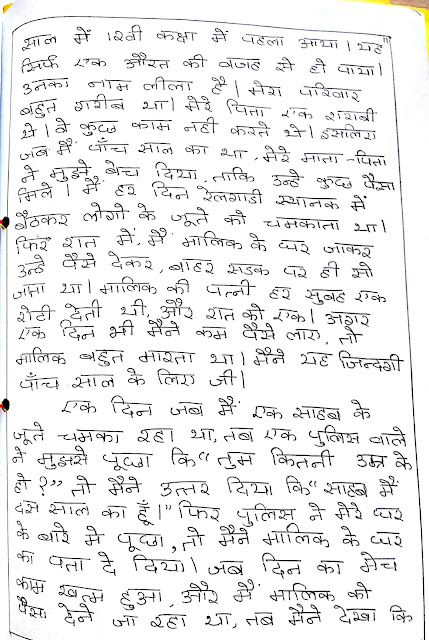 साल में १२वी कक्षा में पहला आया। यह
सिर्फ एक औरत की वजह से हो पाया।
उनका नाम लीला है। मेरा परिवार
बहुत गरीब था। मेरे पिता एक शराबी
थे। वे कुछ काम नही करते थे। इसलिए
जब मैं पाँच साल का था, मेरे माता-पिता
ने मुझे बेच दिया, ताकि उन्हे कुछ पैसा
मिले। मैं हर दिन रेलगाडी स्थानक में
बैठकर लोगो के जूते को चमकाता था।
फिर रात में, मैं मालिक के घर जाकर
उन्हे पैसे देकर, बाहर सडक पर ही सो
जाता था। मालिक की पत्नी हर सुबह एक
रोटी देती थी, और रात को एक। अगर
एक दिन भी मैंने कम पैसे लाए, तो
मालिक बहुत मारता था। मैंने यह जिन्दगी
पाँच साल के लिए जी।
एक दिन जब मैं एक साहब के
जूते चमका रहा था, तब एक पुलिस वाले
ने मुझसे पूछा कि “तुम कितनी उम्र के
हो?” तो मैंने उत्तर दिया कि “साहब मैं
दस साल का हूँ।” फिर पुलिस ने मेरे घर
के बारे मे पूछा, तो मैंने मालिक के घर
का पता दे दिया। जब दिन का मेरा
काम खत्म हुआ, और मैं मालिक को
पैसा देने जा रहा था, तब मैंने देखा कि